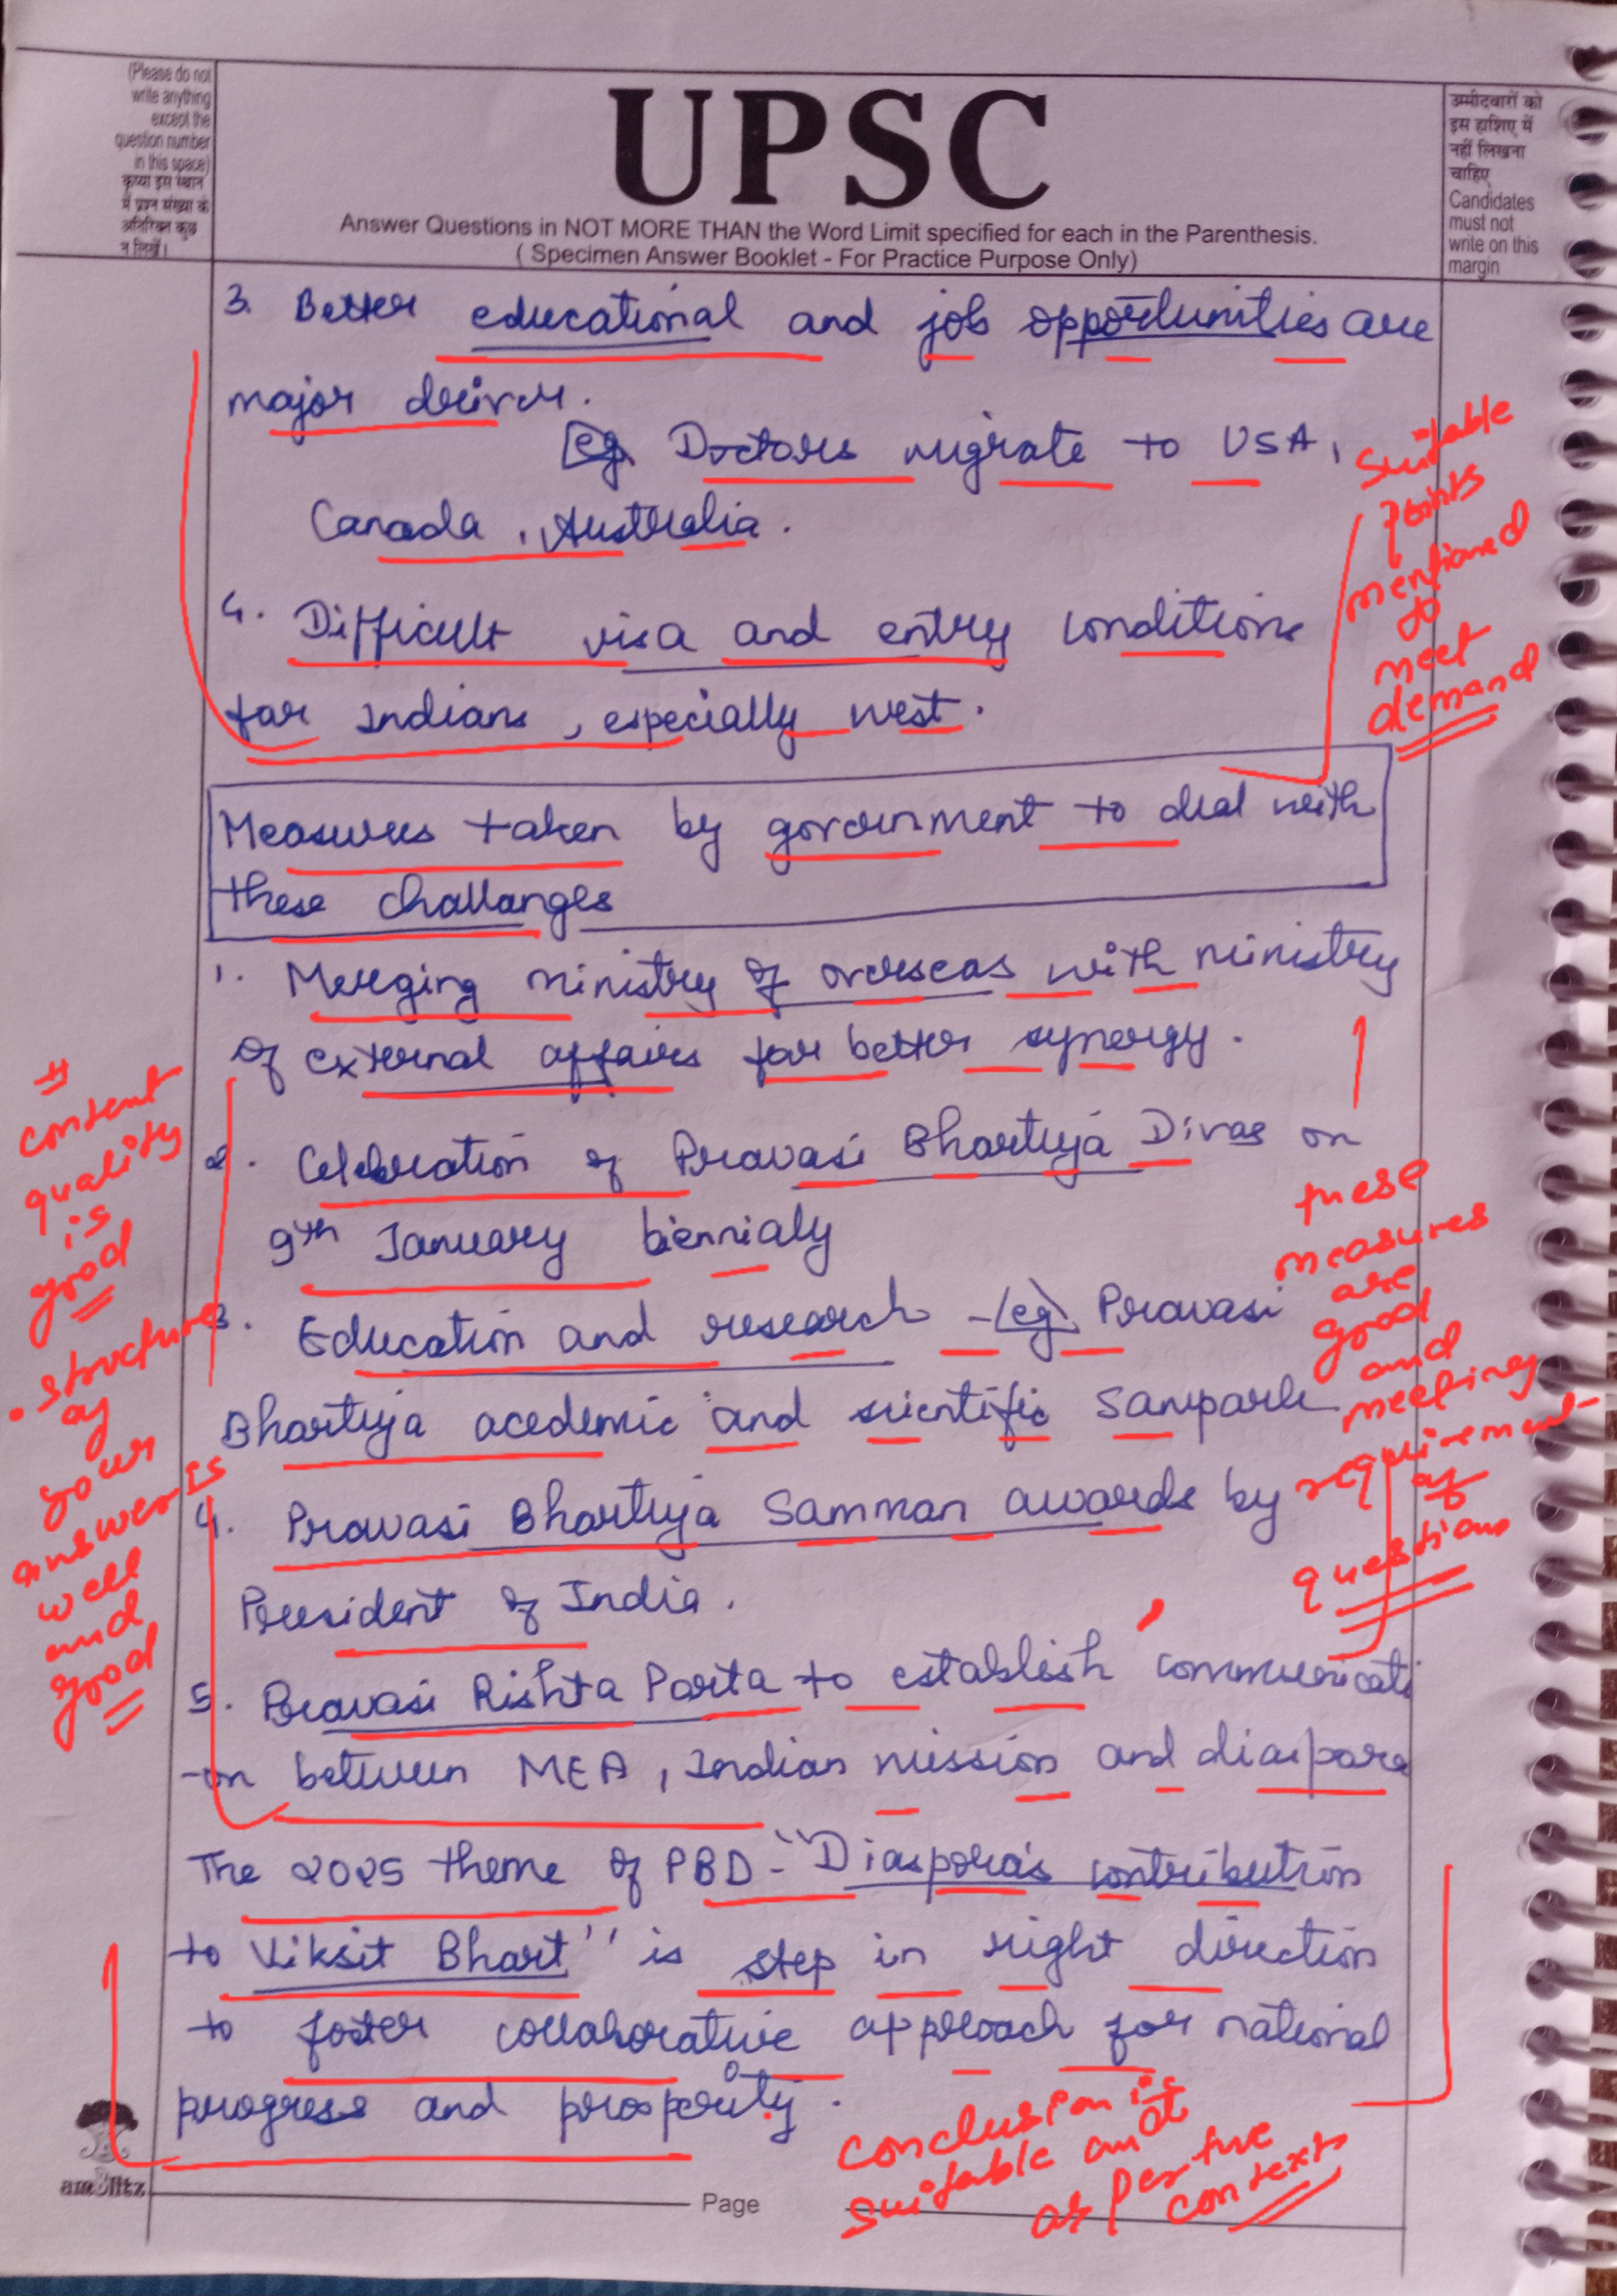 (Please do not
write anything
except the
question number
in this space)
कृप्या इस स्थान
में प्रश्न संख्या के
अतिरिक्त कुछ
न लिखें।
UPSC
Answer Questions in NOT MORE THAN the Word Limit specified for each in the Parenthesis.
( Specimen Answer Booklet - For Practice Purpose Only)
उम्मीदवारों को
इस हाशिए में
नहीं लिखना
चाहिए
Candidates
must not
write on this
margin
3. Better educational and job opportunities are
major driver.
eg Doctors migrate to USA,
Canada, Australia.
4. Difficult visa and entry conditions
for Indians, especially west.
Suitable
points
mentioned
to
meet
demand
Measures taken by government to deal with
these challanges
1. Merging ministry of overseas with ministry
of external affairs for better synergy.
2. Celebration of Pravasi Bhartiya Divas on
9th January biennialy
3. Education and research - eg Pravasi
Bhartiya acedemic and scientific Sampark
4. Pravasi Bhartiya Samman awards by
President of India.
5. Pravasi Rishta Porta to establish communicati
-on between MEA, Indian mission and diaspora
The 2025 theme of PBD - "Diaspora's contribution
to Viksit Bhart" is step in right direction
to foster collaborative approach for national
progress and prosperity.
content
quality
is
good
structure
of
your
answer is
well
and
good
these
measures
are
good
and
meeting
requirement
of
questions
conclusion is
suitable and
as per the
context
am8litz
Page